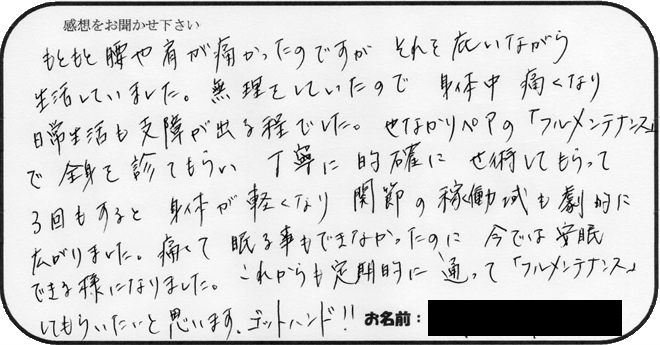 感想をお聞かせ下さい
もともと腰や肩が痛かったのですが それを庇いながら
生活していました。無理をしていたので 身体中 痛くなり
日常生活も支障が出る程でした。せなかリペアの「フルメンテナンス」
で 全身を診てもらい 丁寧に的確に せ術してもらって
3回もすると 身体が軽くなり 関節の稼働域も劇的に
広がりました。痛くて 眠る事もできなかったのに 今では安眠
できる様になりました。これからも定期的に通って「フルメンテナンス」
してもらいたいと思います。ゴットハンド!! お名前: